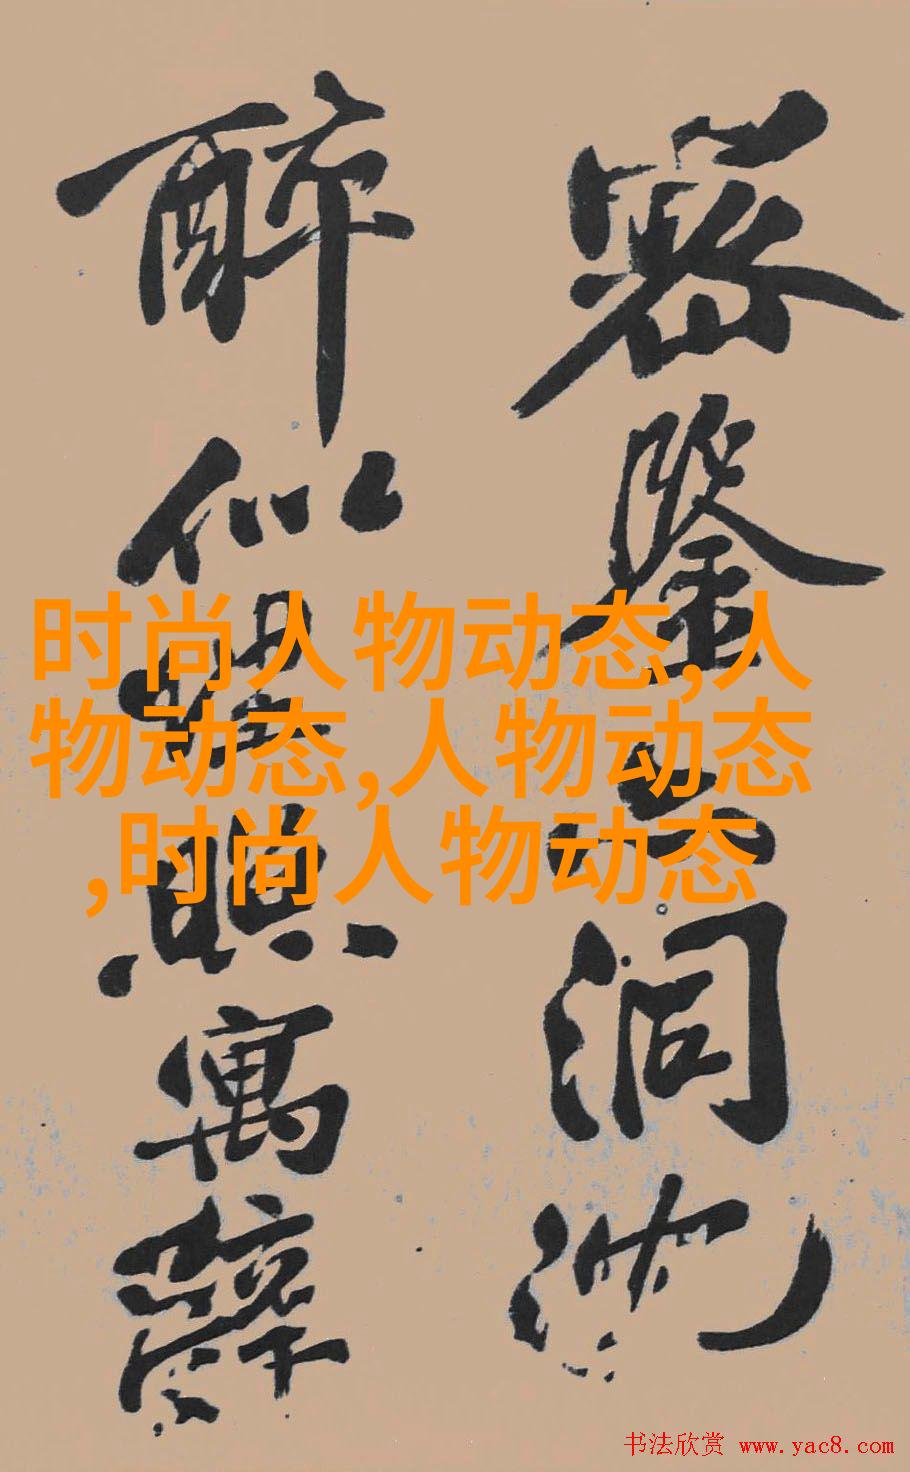 密鑒亦洞沈
醉似埋照寓辭
时尚人物动态,人
物动态,人物动态
,时尚人物动态
书法欣赏 www.yac8.com